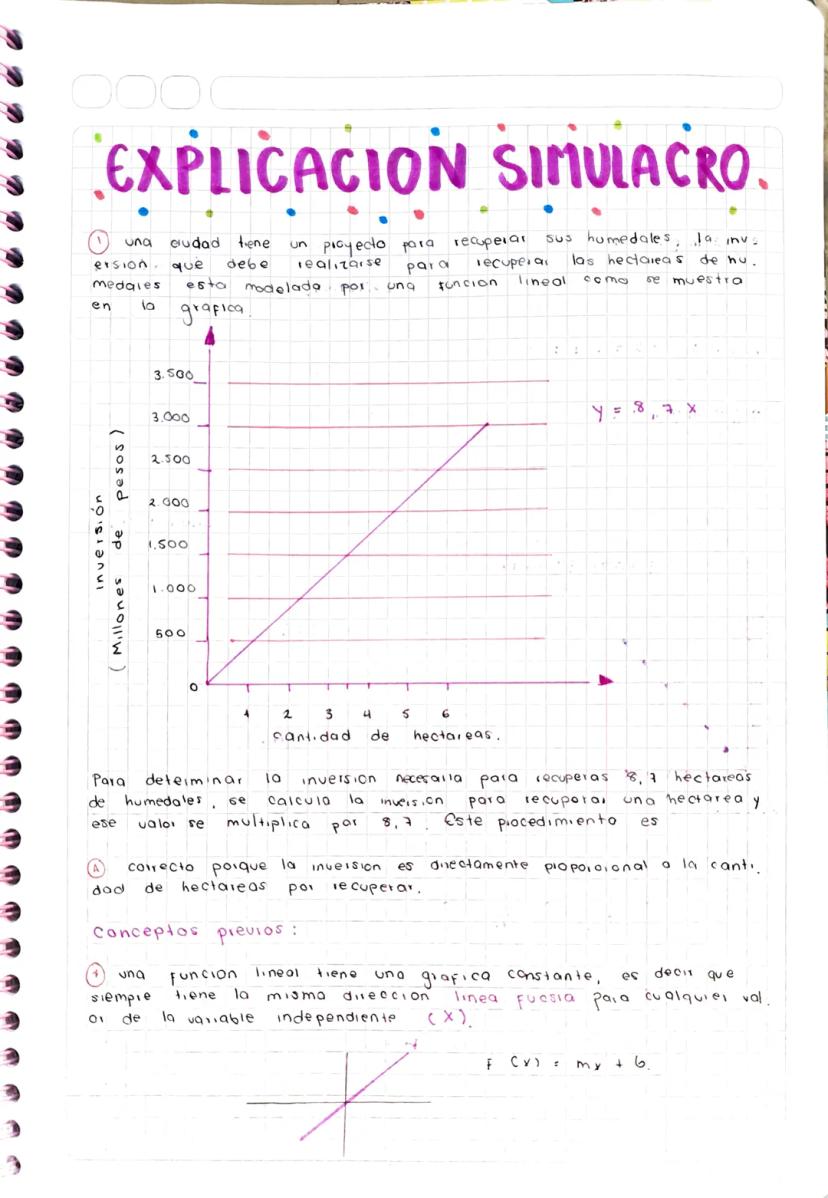 EXPLICACION SIMULACRO
1 una ciudad tiene un proyecto para recuperar sus humedales, la inv-
ersion que debe realizarse para recuperar las hectareas de hu-
medales esta modelada por una funcion lineal como se muestra
en la grafica.
3.500
y = 8,7 x
3.000
2.500
2.000
1.500
1.000
500
0
inversión
(Millones de pesos)
1 2 3 4 5 6
cantidad de hectareas.
Para determinar la inversion necesaria para recuperas 8,7 hectareas
de humedales, se calcula la inversion para recuperar una hectarea y
ese valor se multiplica por 8,7. Este procedimiento es
A correcto porque la inversion es directamente proporcional a la canti-
dad de hectareas por recuperar.
Conceptos previos:
una funcion lineal tiene una grafica constante, es decir que
siempre tiene la misma direccion linea fucsia para cualquier val
or de la variable independiente (X).
F (x) = mx + b.